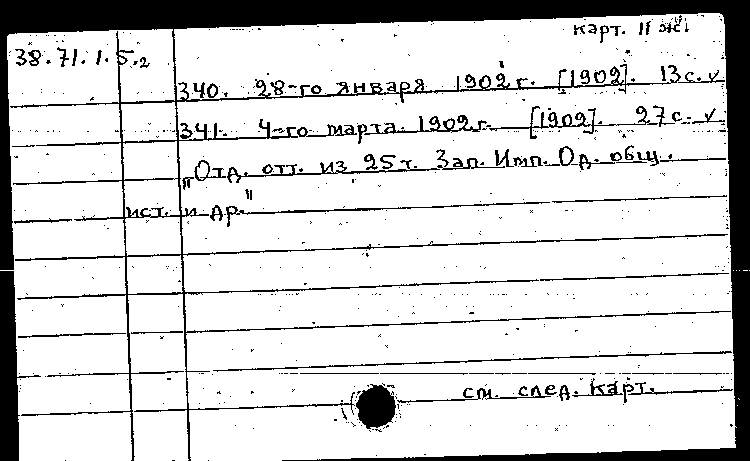 карт. 11
38.71.1.5.2
340. 28-го января 1902 г. [1902]. 13 с. ✓
341. 4-го марта 1902 г. [1902]. 27 с. ✓
„Отд. отт. из 25 т. Зап. Имп. Од. общ.
ист. и др."
см. след. карт.